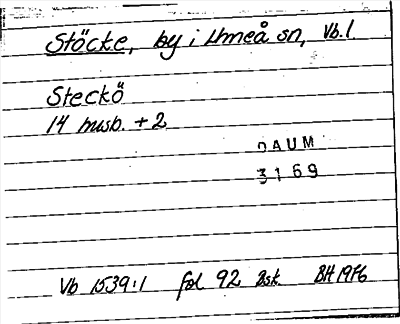 Stöcke, by i Umeå sn, Vb.l.
Steckö
14 husb. + 2
DAUM
3169
Vb 1539:1 fol 92 Bsk. BH 1976